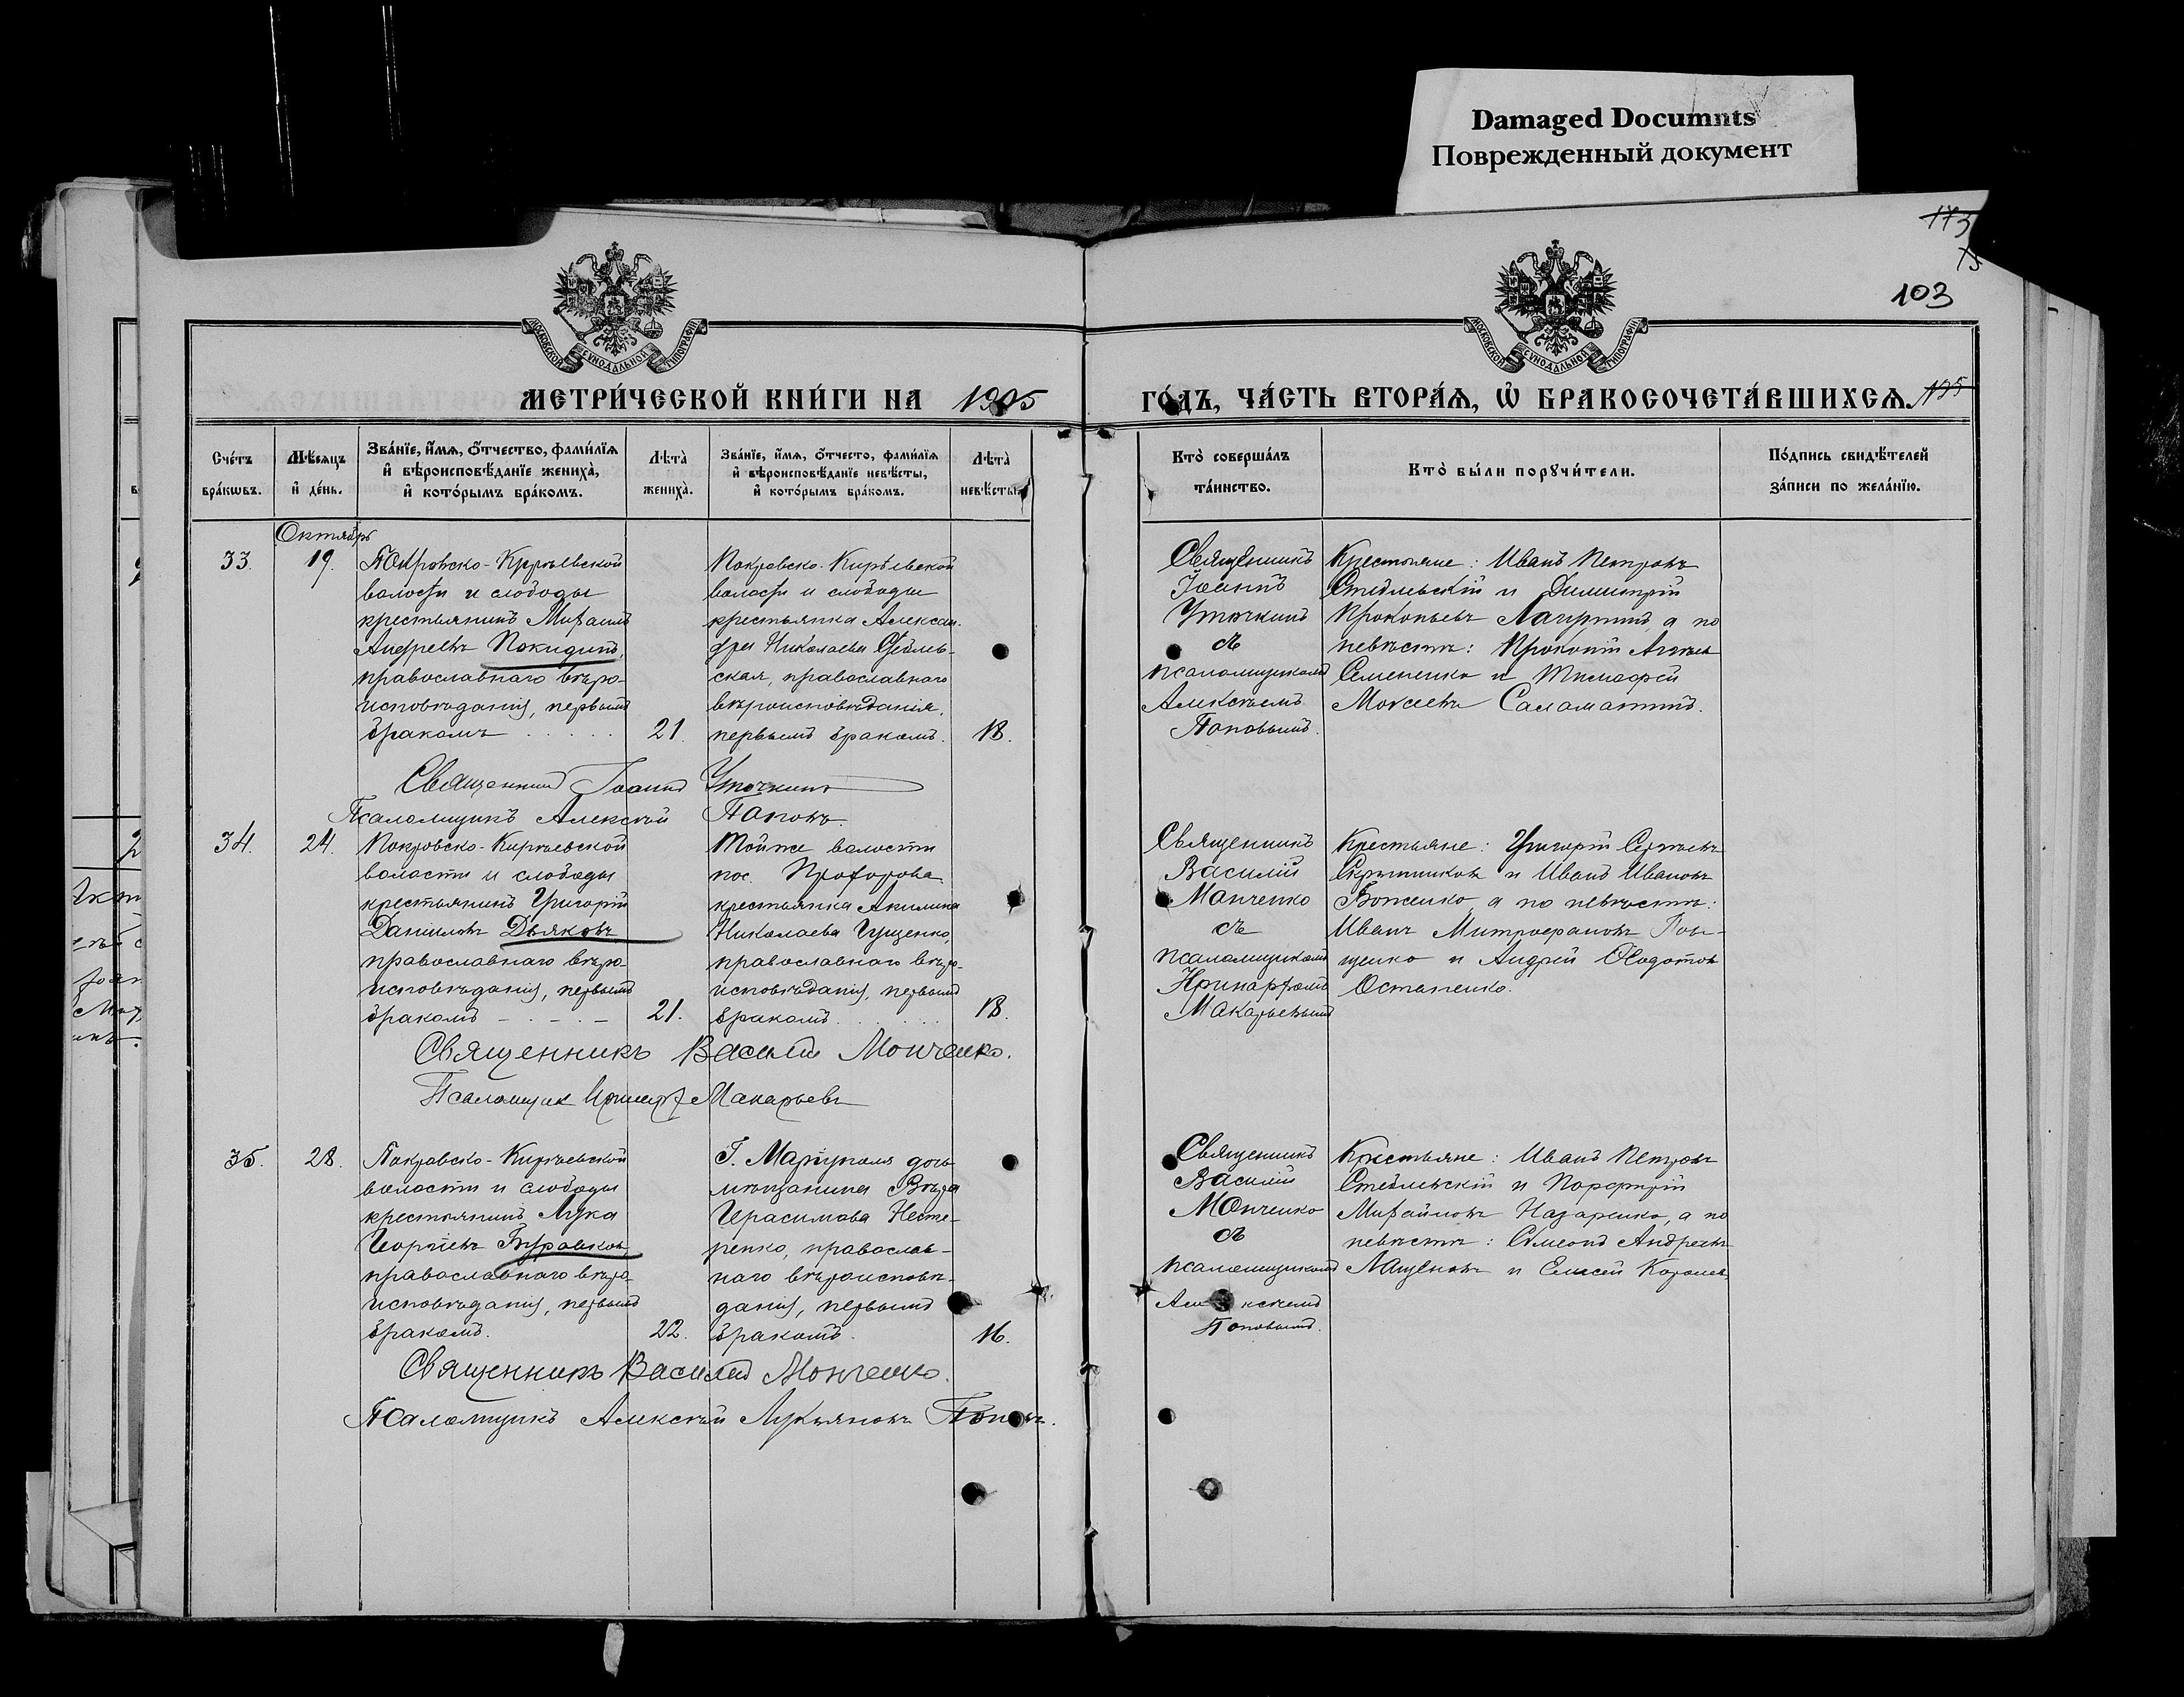 Damaged Documnts
Поврежденный документ
173
103
МОСКОВСКОЙ СѴНОДАЛЬНОЙ ТИПОГРАФІИ
МОСКОВСКОЙ СѴНОДАЛЬНОЙ ТИПОГРАФІИ
МЕТРИ́ЧЕСКОЙ КНИ́ГИ НА 1905
ГО́ДЪ, ЧА́СТЬ ВТОРА́Ѧ, Ѽ БРАКОСОЧЕТА́ВШИХСѦ.
Сче́тъ бра́кѡвъ.
Мѣ́сяцъ и҆ де́нь.
Зва́нїе, и҆́мѧ, ѻ҆́тчество, фами́лїѧ
и҆ вѣроисповѣ́данїе жениха̀,
и҆ кото́рымъ бра́комъ.
Лѣта̀ жениха̀.
Зва́нїе, и҆́мѧ, ѻ҆́тчесто, фами́лїѧ
и҆ вѣроисповѣ́данїе невѣ́сты,
и҆ кото́рымъ бра́комъ.
Лѣта̀ невѣ́сты.
Кто̀ соверша́лъ
та́инство.
Кто̀ бы́ли порꙋчи́тели.
По́дпись свидѣ́телей
за́писи по жела́нїю.
Октябрь
33.
19.
Покровско-Кирѣевской
волости и слободы
крестьянинъ Михаилъ
Андреевъ Покидинъ,
православнаго вѣро-
исповѣданія, первымъ
бракомъ
21.
Покровско-Кирѣевской
волости и слободы
крестьянка Алексан-
дра Николаева Стеблев-
ская, православнаго
вѣроисповѣданія,
первымъ бракомъ.
18.
Священникъ
Іоаннъ
Уточкинъ
съ
псаломщикомъ
Алексѣемъ
Поповымъ.
Крестьяне: Иванъ Петровъ
Стеблевскій и Димитрій
Прокопьевъ Лагутинъ, а по
невѣстѣ: Прокопій
Семененко и Тимофей
Моисеевъ Саломатинъ.
Священникъ Іоаннъ Уточкинъ
Псаломщикъ Алексѣй Поповъ.
34.
24.
Покровско-Кирѣевской
волости и слободы
крестьянинъ Григорій
Даниловъ Дьяковъ
православнаго вѣро-
исповѣданія, первымъ
бракомъ
21.
Той же волости
пос. Прохорова
крестьянка Акилина
Николаева Гущенко,
православнаго вѣро-
исповѣданія, первымъ
бракомъ
18.
Священникъ
Василій
Монченко
съ
псаломщикомъ
Иринархомъ
Макарьевымъ
Крестьяне: Григорій Сергѣевъ
Скрынниковъ и Иванъ Ивановъ
Боженко, а по невѣстѣ:
Иванъ Митрофановъ
и Андрей Ѳедотовъ
Остапенко.
Священникъ Василій Монченко.
Псаломщик Иринархъ Макарьевъ
35.
28.
Покровско-Кирѣевской
волости и слободы
крестьянинъ Лука
Георгіевъ Буравковъ
православнаго вѣро-
исповѣданія, первымъ
бракомъ.
22.
Г. Маріуполя дочь
мѣщанина Вѣра
Герасимова Несте-
ренко, православ-
наго вѣроисповѣ-
данія, первымъ
бракомъ.
16.
Священникъ
Василій
Монченко
съ
псаломщикомъ
Алексѣемъ
Поповымъ.
Крестьяне: Иванъ Петровъ
Стеблевскій и Порфирій
Михайловъ Назаренко, а по
невѣстѣ: Симеонъ Андреевъ
Лященковъ и Елисей Королев
Священникъ Василій Монченко.
Псаломщикъ Алексѣй Лукьяновъ Поповъ.